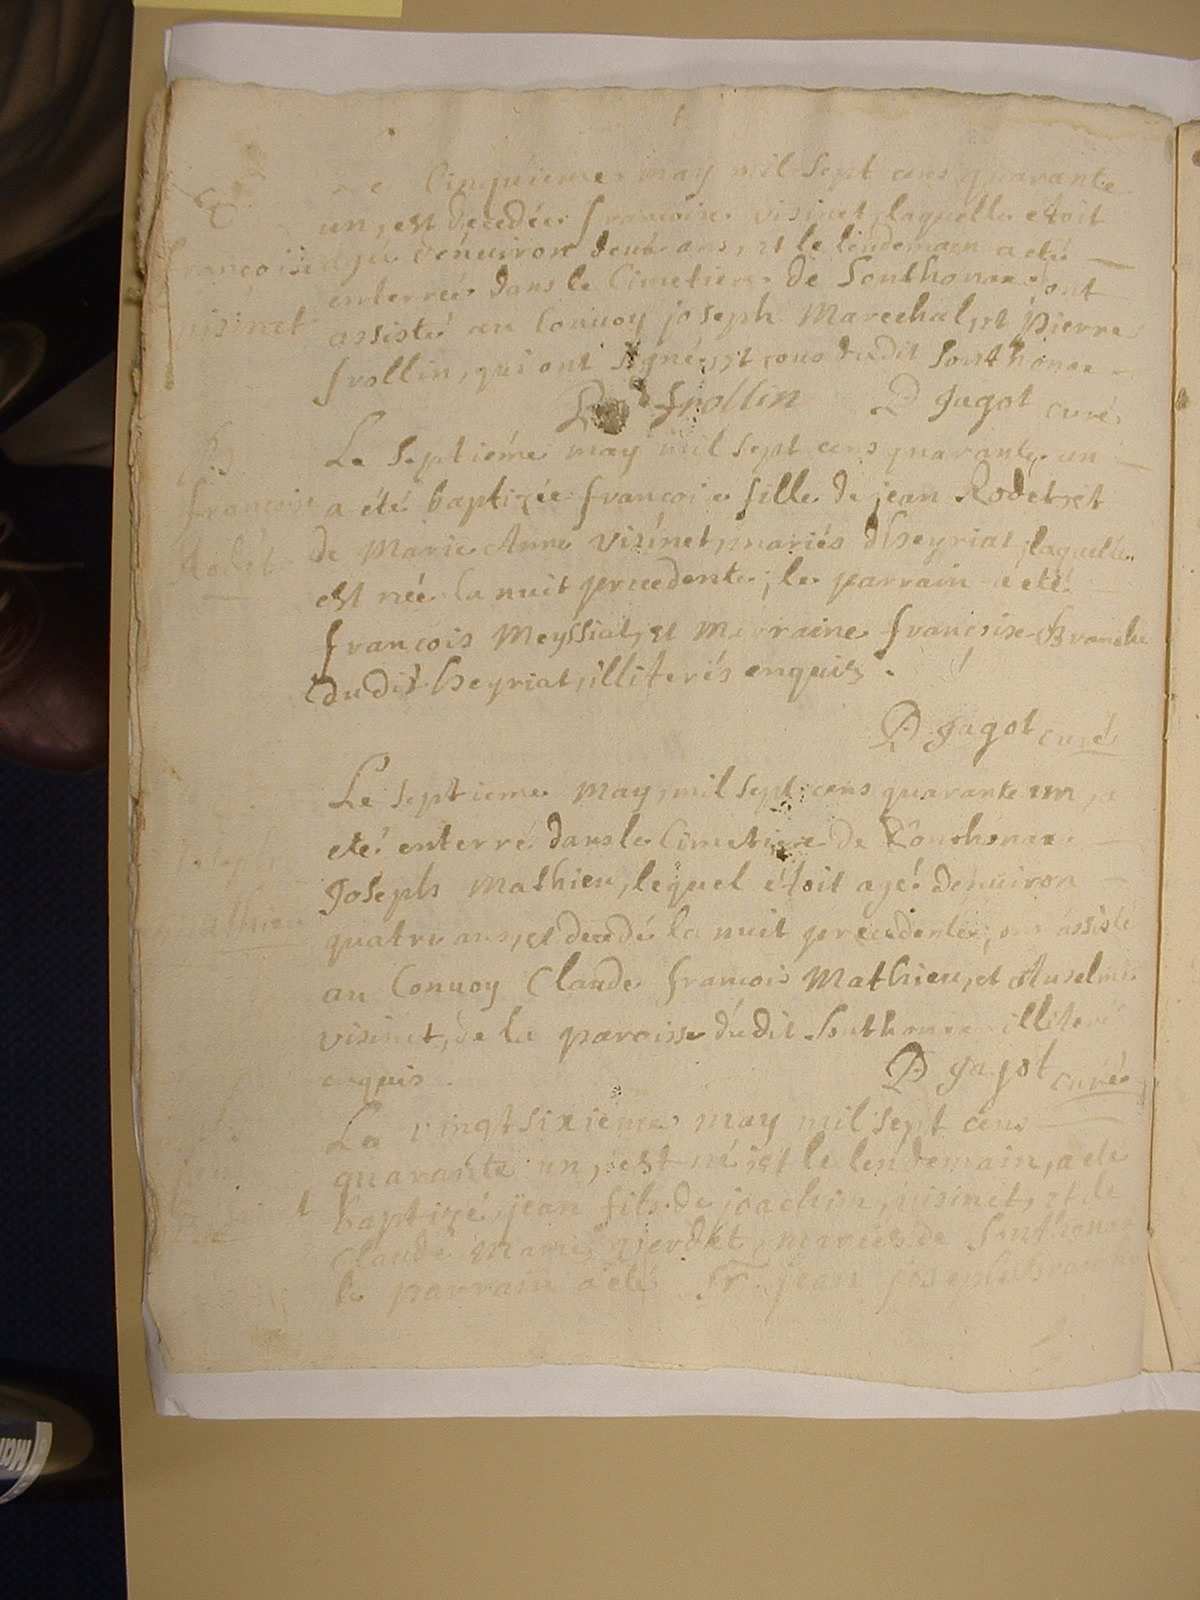 Cinquieme may mil Sept cens quarante
un, est decedée francoise visinet, laquelle etoit
francoise
agée d'enuiron deux ans, et le lendemain a eté
visinet
enterrée dans le Cimetiere de Sonthonax, ont
assisté au Conuoy joseph Marechal, et pierre
frollin, qui ont signé, et tous dudit Sonthonax
frollin D Jagot curé
Le Septiéme may mil Sept cens quarante un
francoise
a été baptizée francoise fille de jean Rodet, et
Rodet
de Marie Anne Visinet, mariés d'heyriat, laquelle
est née la nuit precedente, le parrain a eté
françois Meyssiat, et Marraine francoise
dudit heyriat, illiterés enquis.
D Jagot curé
Le Septieme May, mil Sept cens quarante un, a
eté enterré dans le Cimetiere de Sonthonax
joseph
Joseph Mathieu, lequel étoit agé d'enuiron
mathieu
quatre ans, et decedé la nuit precedente, ont assisté
au Conuoy Claude francois Mathieu, et Anselme
visinet, de la paroisse dudit Sonthonax illiterés
enquis. D Jagot curé
Le vingtsixieme may mil Sept cens
quarante un, est né, et le lendemain, a eté
baptizé, jean fils de joachim, visinet, et de
Claude Marie mariés de Sonthonax
le parrain a eté Sr. jean joseph